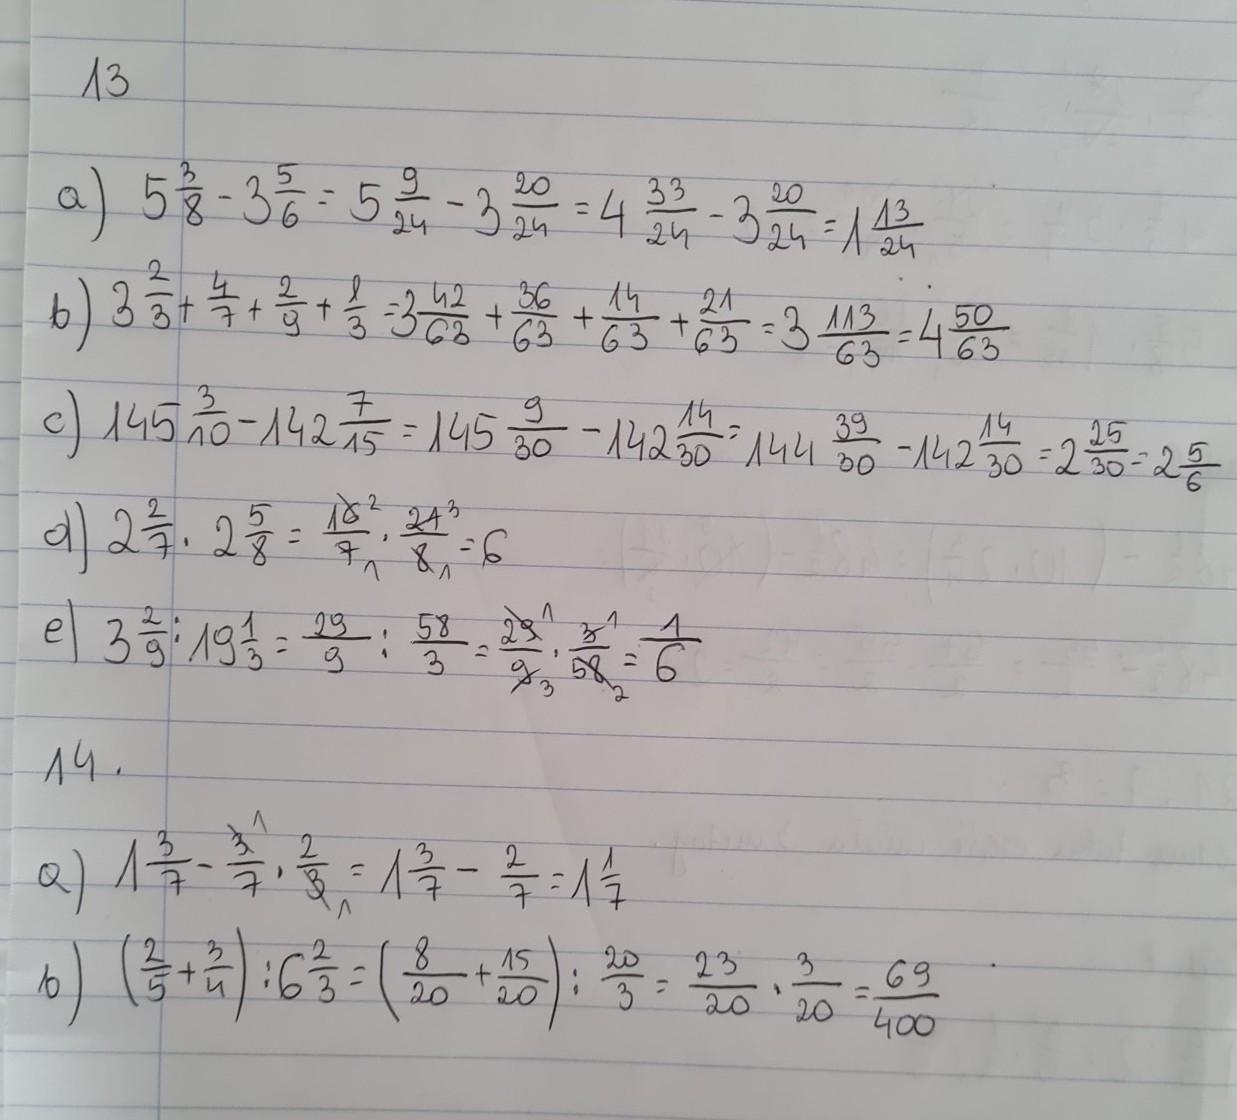 13
a) 5 3/8 - 3 5/6 = 5 9/24 - 3 20/24 = 4 33/24 - 3 20/24 = 1 13/24
b) 3 2/3 + 4/7 + 2/9 + 1/3 = 3 42/63 + 36/63 + 14/63 + 21/63 = 3 113/63 = 4 50/63
c) 145 3/10 - 142 7/15 = 145 9/30 - 142 14/30 = 144 39/30 - 142 14/30 = 2 25/30 = 2 5/6
d) 2 2/7 · 2 5/8 = 16 2/7 1 · 21 3/8 1 = 6
e) 3 2/9 : 19 1/3 = 29/9 : 58/3 = 29 1/9 3 · 3 1/58 2 = 1/6
14.
a) 1 3/7 - 3 1/7 · 2/3 1 = 1 3/7 - 2/7 = 1 1/7
b) (2/5 + 3/4) : 6 2/3 = (8/20 + 15/20) : 20/3 = 23/20 · 3/20 = 69/400